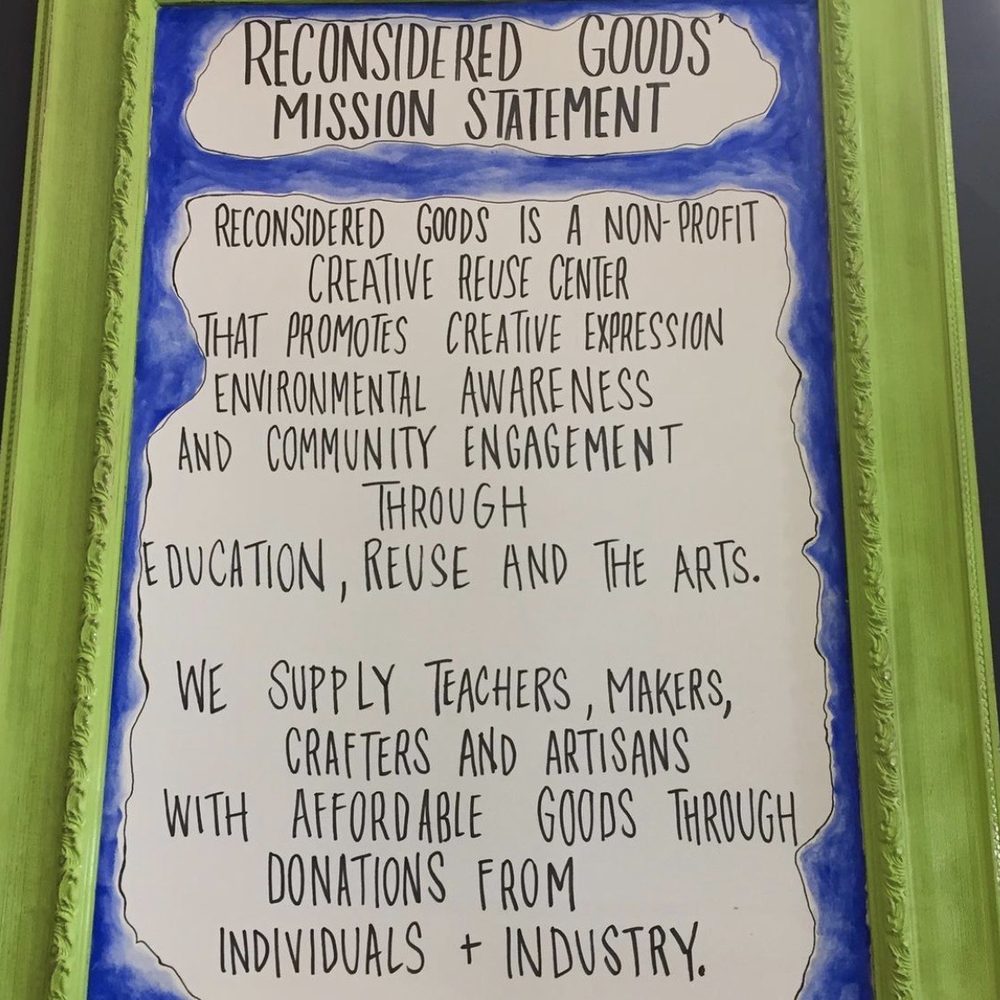 RECONSIDERED GOODS'
MISSION STATEMENT
RECONSIDERED GOODS IS A NON-PROFIT
CREATIVE REUSE CENTER
THAT PROMOTES CREATIVE EXPRESSION
ENVIRONMENTAL AWARENESS
AND COMMUNITY ENGAGEMENT
THROUGH
EDUCATION, REUSE AND THE ARTS.
WE SUPPLY TEACHERS, MAKERS,
CRAFTERS AND ARTISANS
WITH AFFORDABLE GOODS THROUGH
DONATIONS FROM
INDIVIDUALS + INDUSTRY.